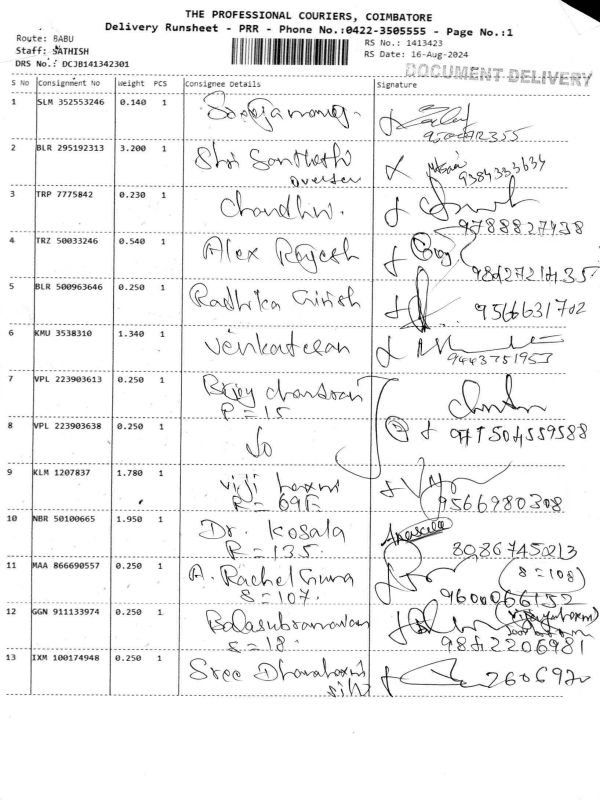 THE PROFESSIONAL COURIERS, COIMBATORE
Delivery Runsheet - PRR - Phone No.:0422-3505555 - Page No.:1
Route: BABU
Staff: SATHISH
DRS No.: DCJB141342301
RS No.: 1413423
RS Date: 16-Aug-2024
DOCUMENT DELIVERY
S No Consignment No Weight PCS Consignee Details Signature
1 SLM 352553246 0.140 1
2 BLR 295192313 3.200 1 Shri Santhoshi
9384333634
3 TRP 7775842 0.230 1 Chandhu.
9788827438
4 TRZ 50033246 0.540 1 Alex Rajesh
5 BLR 500963646 0.250 1 Radhika Girish 9566631702
6 KMU 3538310 1.340 1 Venkatesan
9443751953
7 VPL 223903613 0.250 1
P = 15
8 VPL 223903638 0.250 1
9 KLM 1207837 1.780 1 Viji
9566980308
10 NBR 50100665 1.950 1 Dr. Kosala
R = 135 80867450213
11 MAA 866690557 0.250 1 A. Rachel (S = 108)
S = 107. 9600066152
12 GGN 911133974 0.250 1 Balasubramanian
S = 18. 9842206981
13 IXM 100174948 0.250 1 Sree 2606970